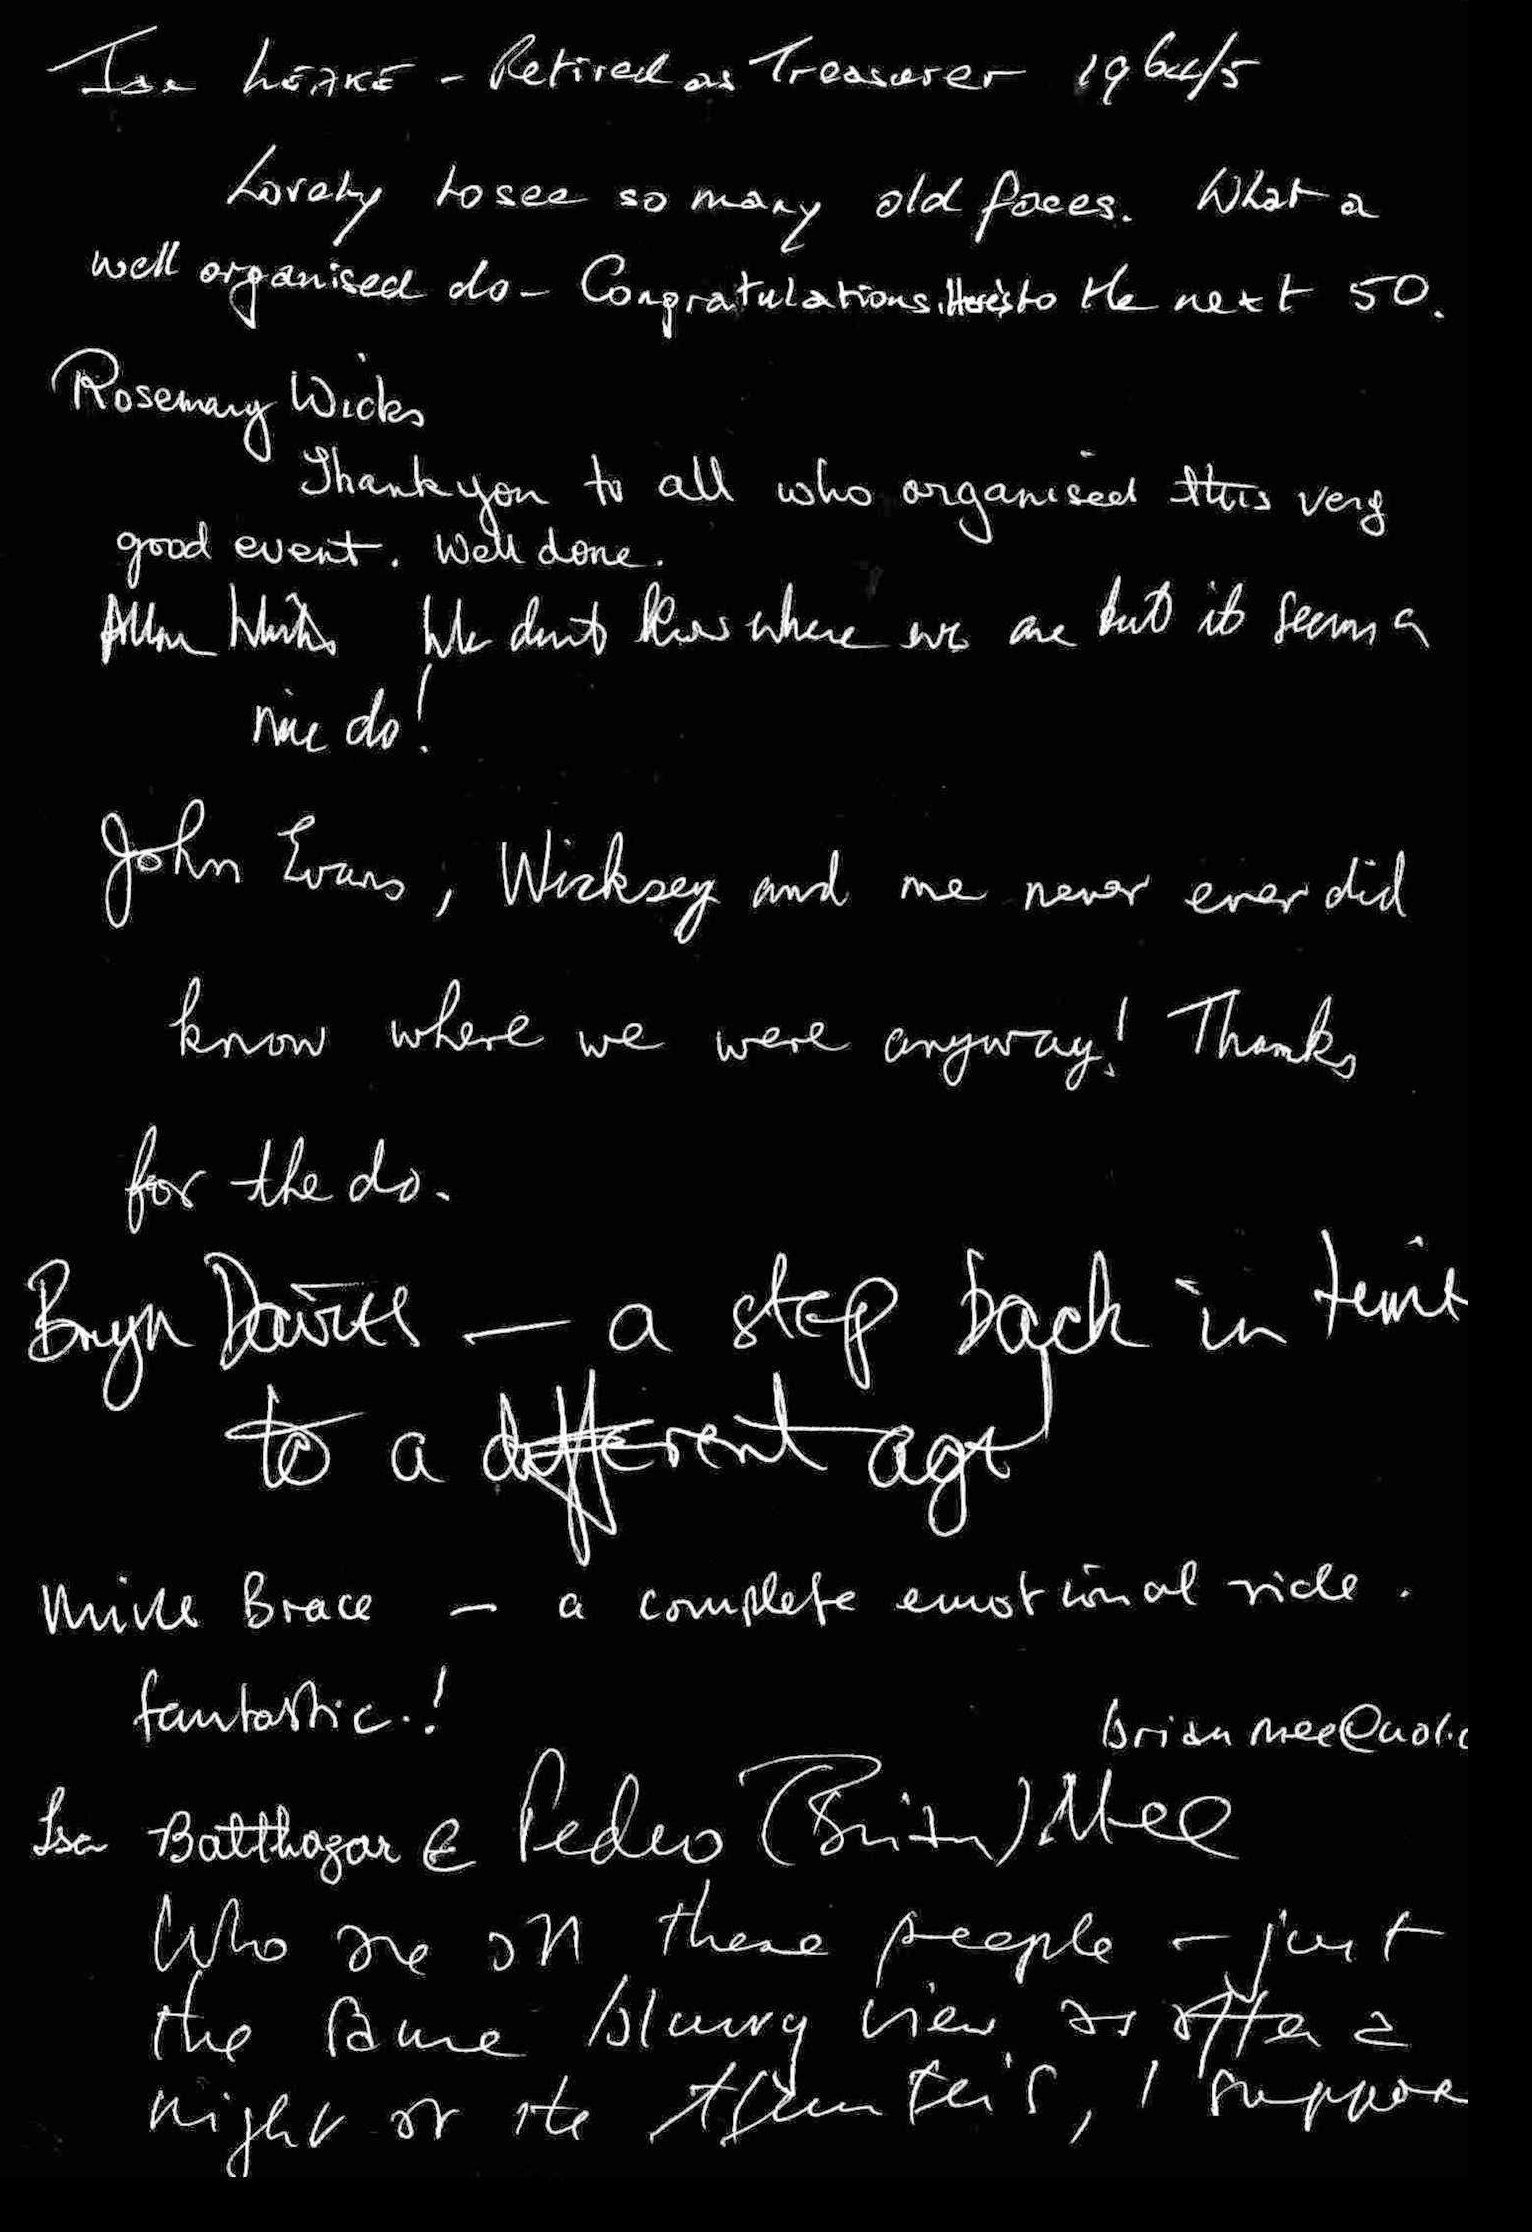 Ian LEAKE - Retired as Treasurer 1964/5
Lovely to see so many old faces. What a
well organised do - Congratulations. Here's to the next 50.
Rosemary Wicks
Thank you to all who organised this very
good event. Well done.
Allan Wicks We don't know where we are but it seems a
nice do!
John Evans, Wicksey and me never ever did
know where we were anyway! Thanks
for the do.
Bryn Davies - a step back in time
to a different age
Mike Brace - a complete emotional ride.
fantastic.!
brianmee@
Pedro (Brian) Mee
Who are all these people - just
the same blurry view as after a
night at the